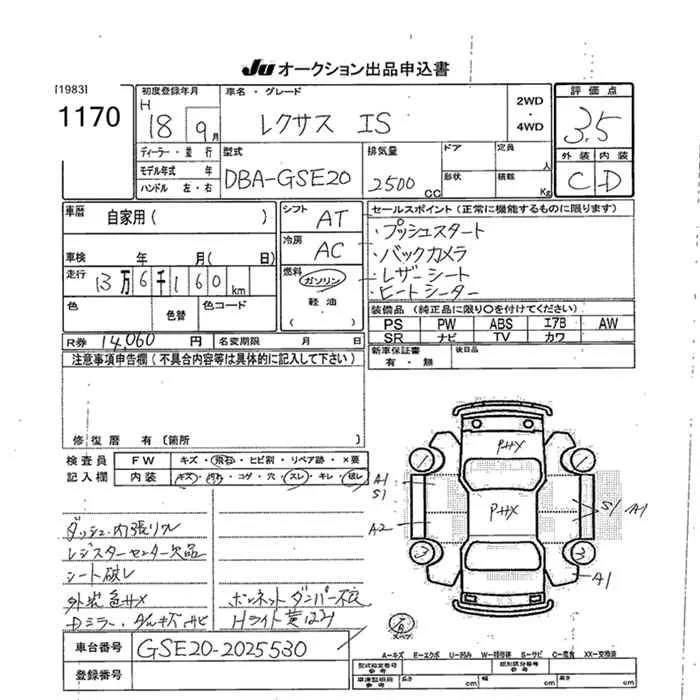 JU オークション出品申込書
[1983]
1170
初度登録年月
H
18 9月
車名・グレード
レクサス IS
2WD
・
4WD
評価点
3.5
外装 内装
C D
ディーラー・並行
モデル年式 年
ハンドル 左・右
型式
DBA-GSE20
排気量
2500 cc
ドア
形状
定員
人
積載
Kg
車暦
自家用( )
車検 年 月( 日)
走行 13万6千160km
色
色替
色コード
シフト AT
冷房 AC
燃料 ガソリン
軽油
( )
セールスポイント(正常に機能するものに限ります)
・プッシュスタート
・バックカメラ
・レザーシート
・ヒートシーター
装備品(純正品に限り○を付けてください)
PS PW ABS エアB AW
SR ナビ TV カワ
R券 14,060 円
名変期限 月 日
新車保証書
有・無
後日品
注意事項申告欄(不具合内容等は具体的に記入して下さい)
修復暦 有〔箇所 〕
検査員
記入欄
FW キズ・飛石・ヒビ割・リペア跡・×要
内装 キズ・汚れ・コゲ・穴・スレ・キレ・破レ
ダッシュ・内張リ
レジスターセンター欠品
シート破レ
外装
Dミラー・
ボンネットダンパー不良
Hライト黄ばみ
P-HX
P-HX
1
1
3
3
A1
S1
A2
S1
A1
A1
車台番号 GSE20-2025530
登録番号
A-キズ E-エクボ U-凹み W-補修跡 S-サビ C-腐食 XX-交換済
型式指定番号
類別区分番号
長さ cm 幅 cm 高さ cm